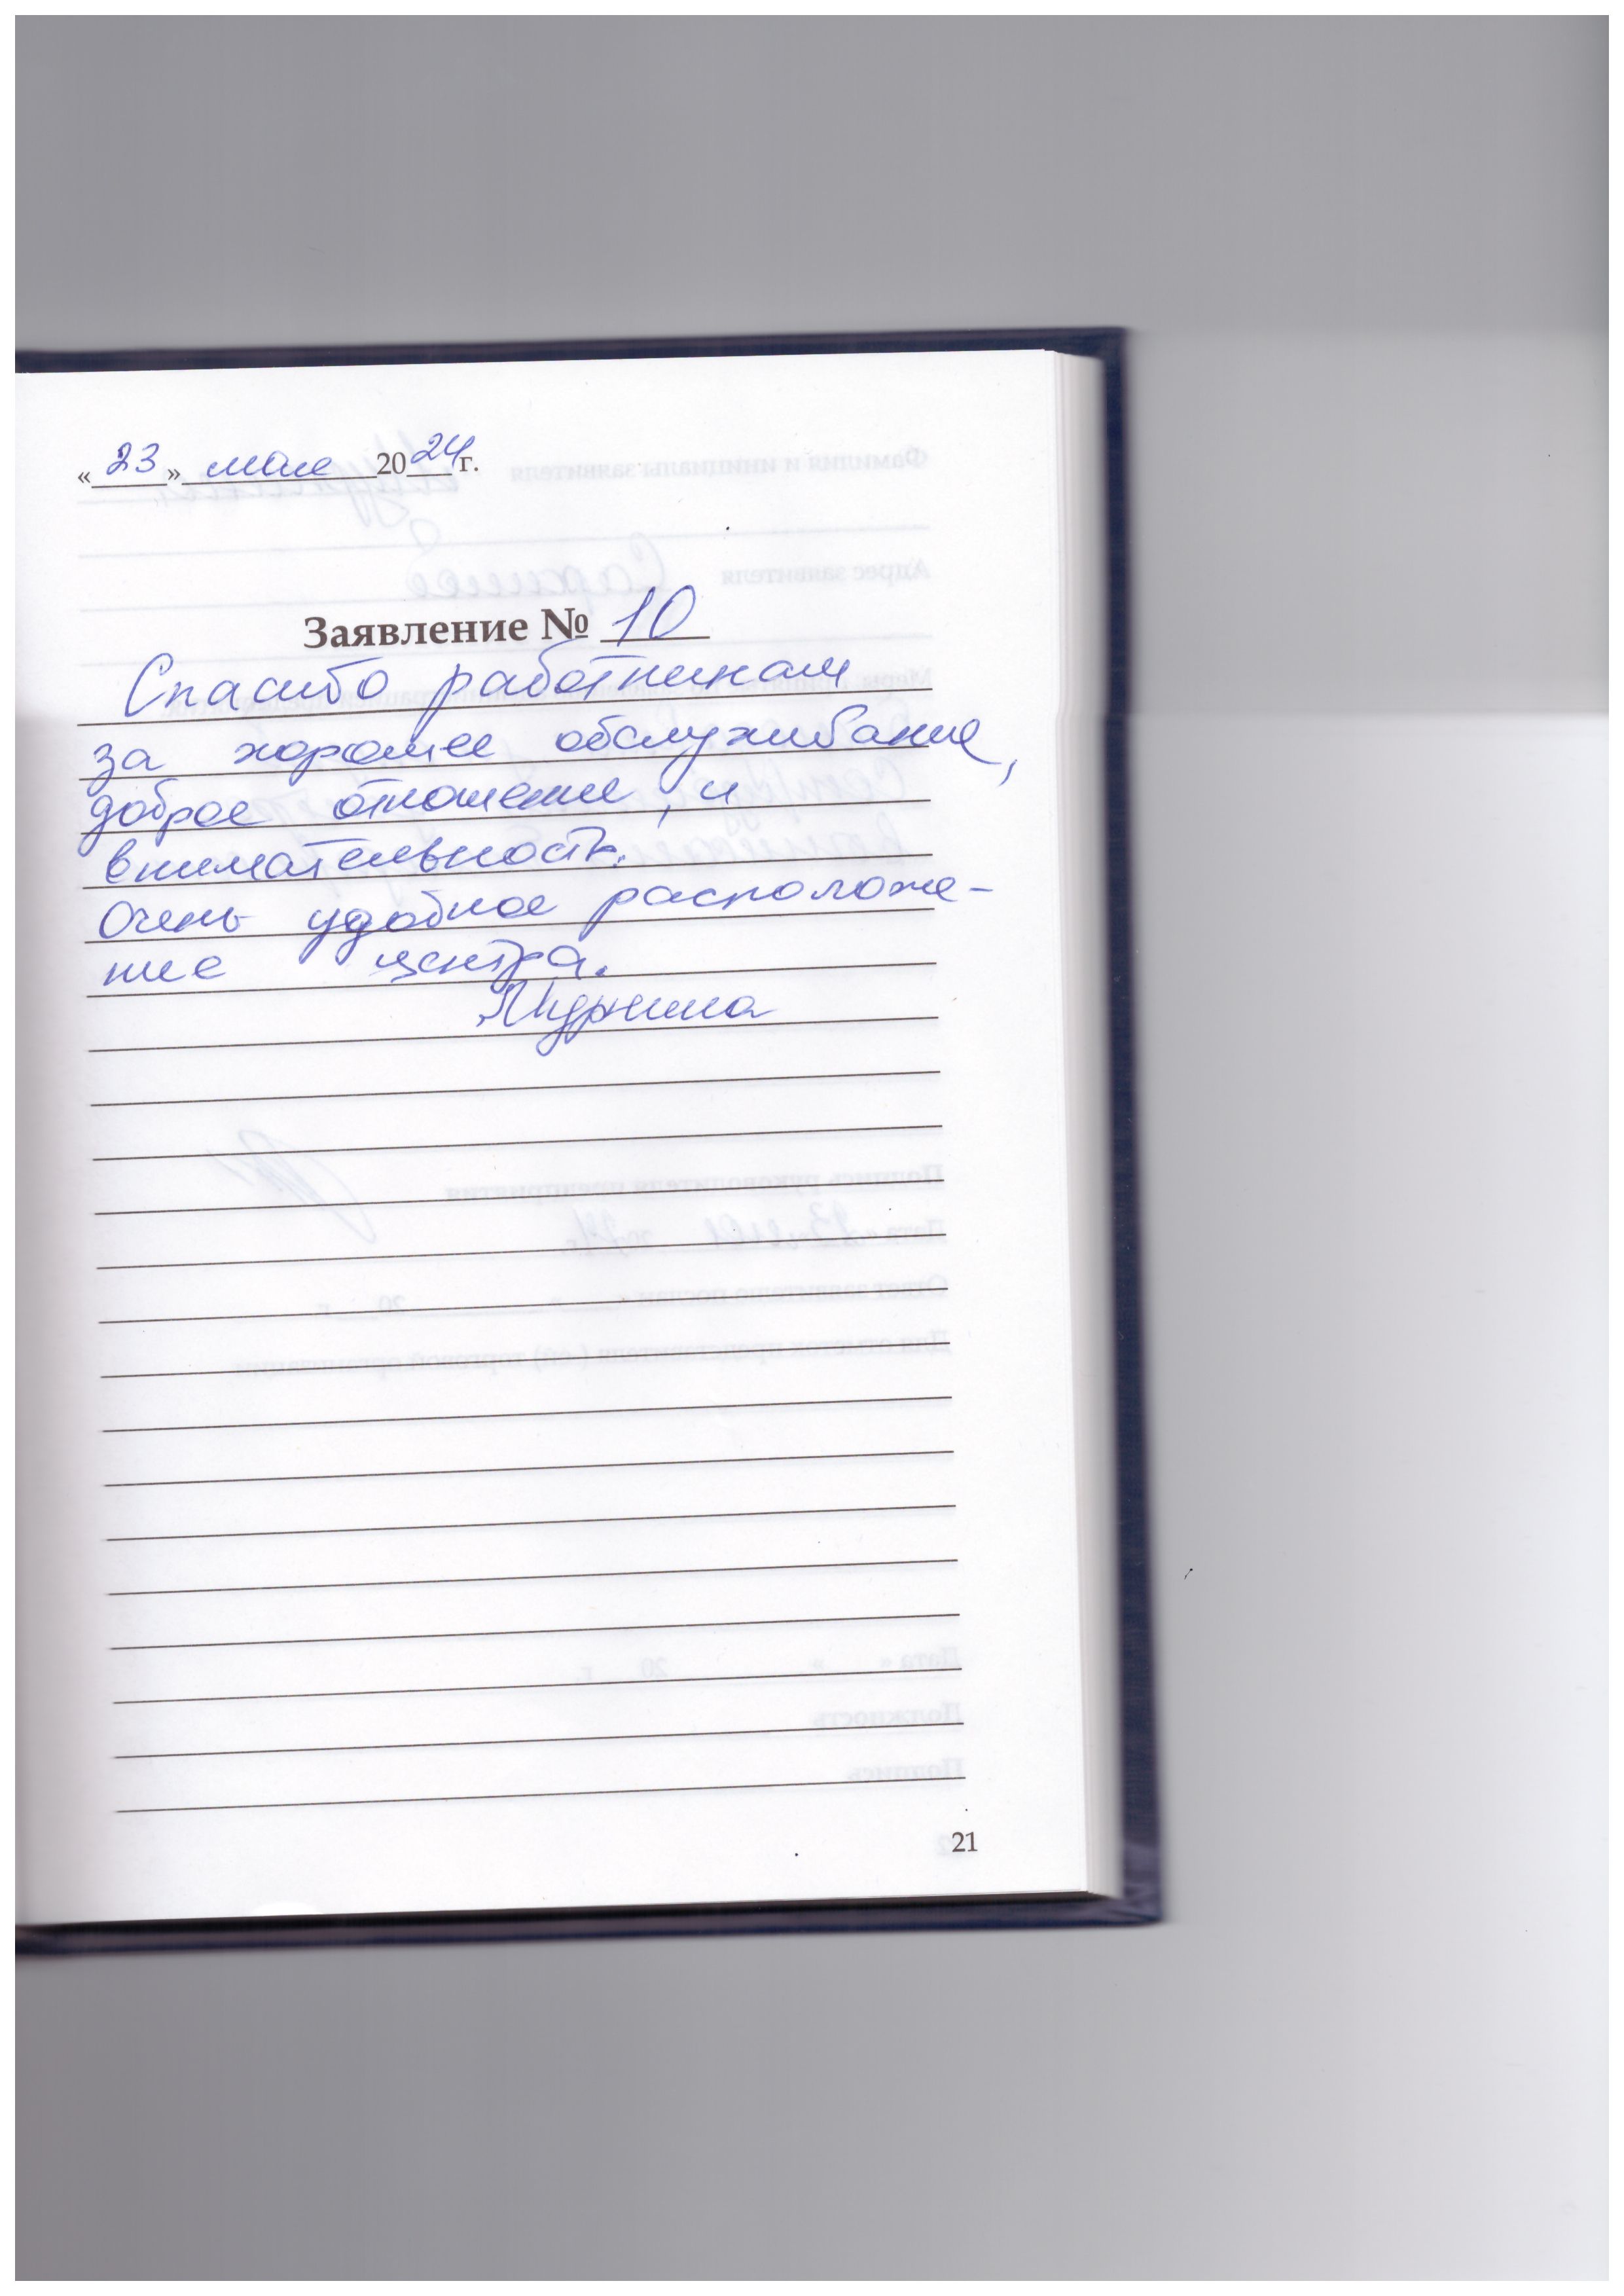 «23» мая 2024 г.
Заявление № 10
Спасибо работникам
за хорошее обслуживание,
доброе отношение, и
внимательность.
Очень удобное расположе-
ние центра.
21